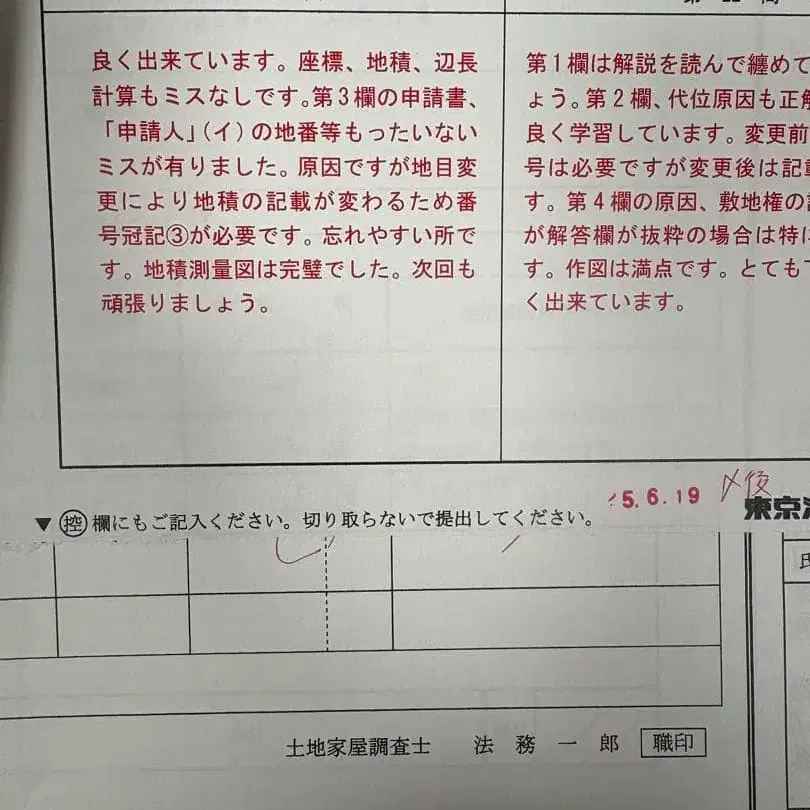 良く出来ています。座標、地積、辺長
計算もミスなしです。第3欄の申請書、
「申請人」(イ)の地番等もったいない
ミスが有りました。原因ですが地目変
更により地積の記載が変わるため番
号冠記③が必要です。忘れやすい所で
す。地積測量図は完璧でした。次回も
頑張りましょう。
第1欄は解説を読んで纏めて
ょう。第2欄、代位原因も正解
良く学習しています。変更前
号は必要ですが変更後は記載
す。第4欄の原因、敷地権の
が解答欄が抜粋の場合は特に
す。作図は満点です。とても
く出来ています。
5.6.19 〆後
▼㊡欄にもご記入ください。切り取らないで提出してください。
東京
土地家屋調査士 法務一郎 職印